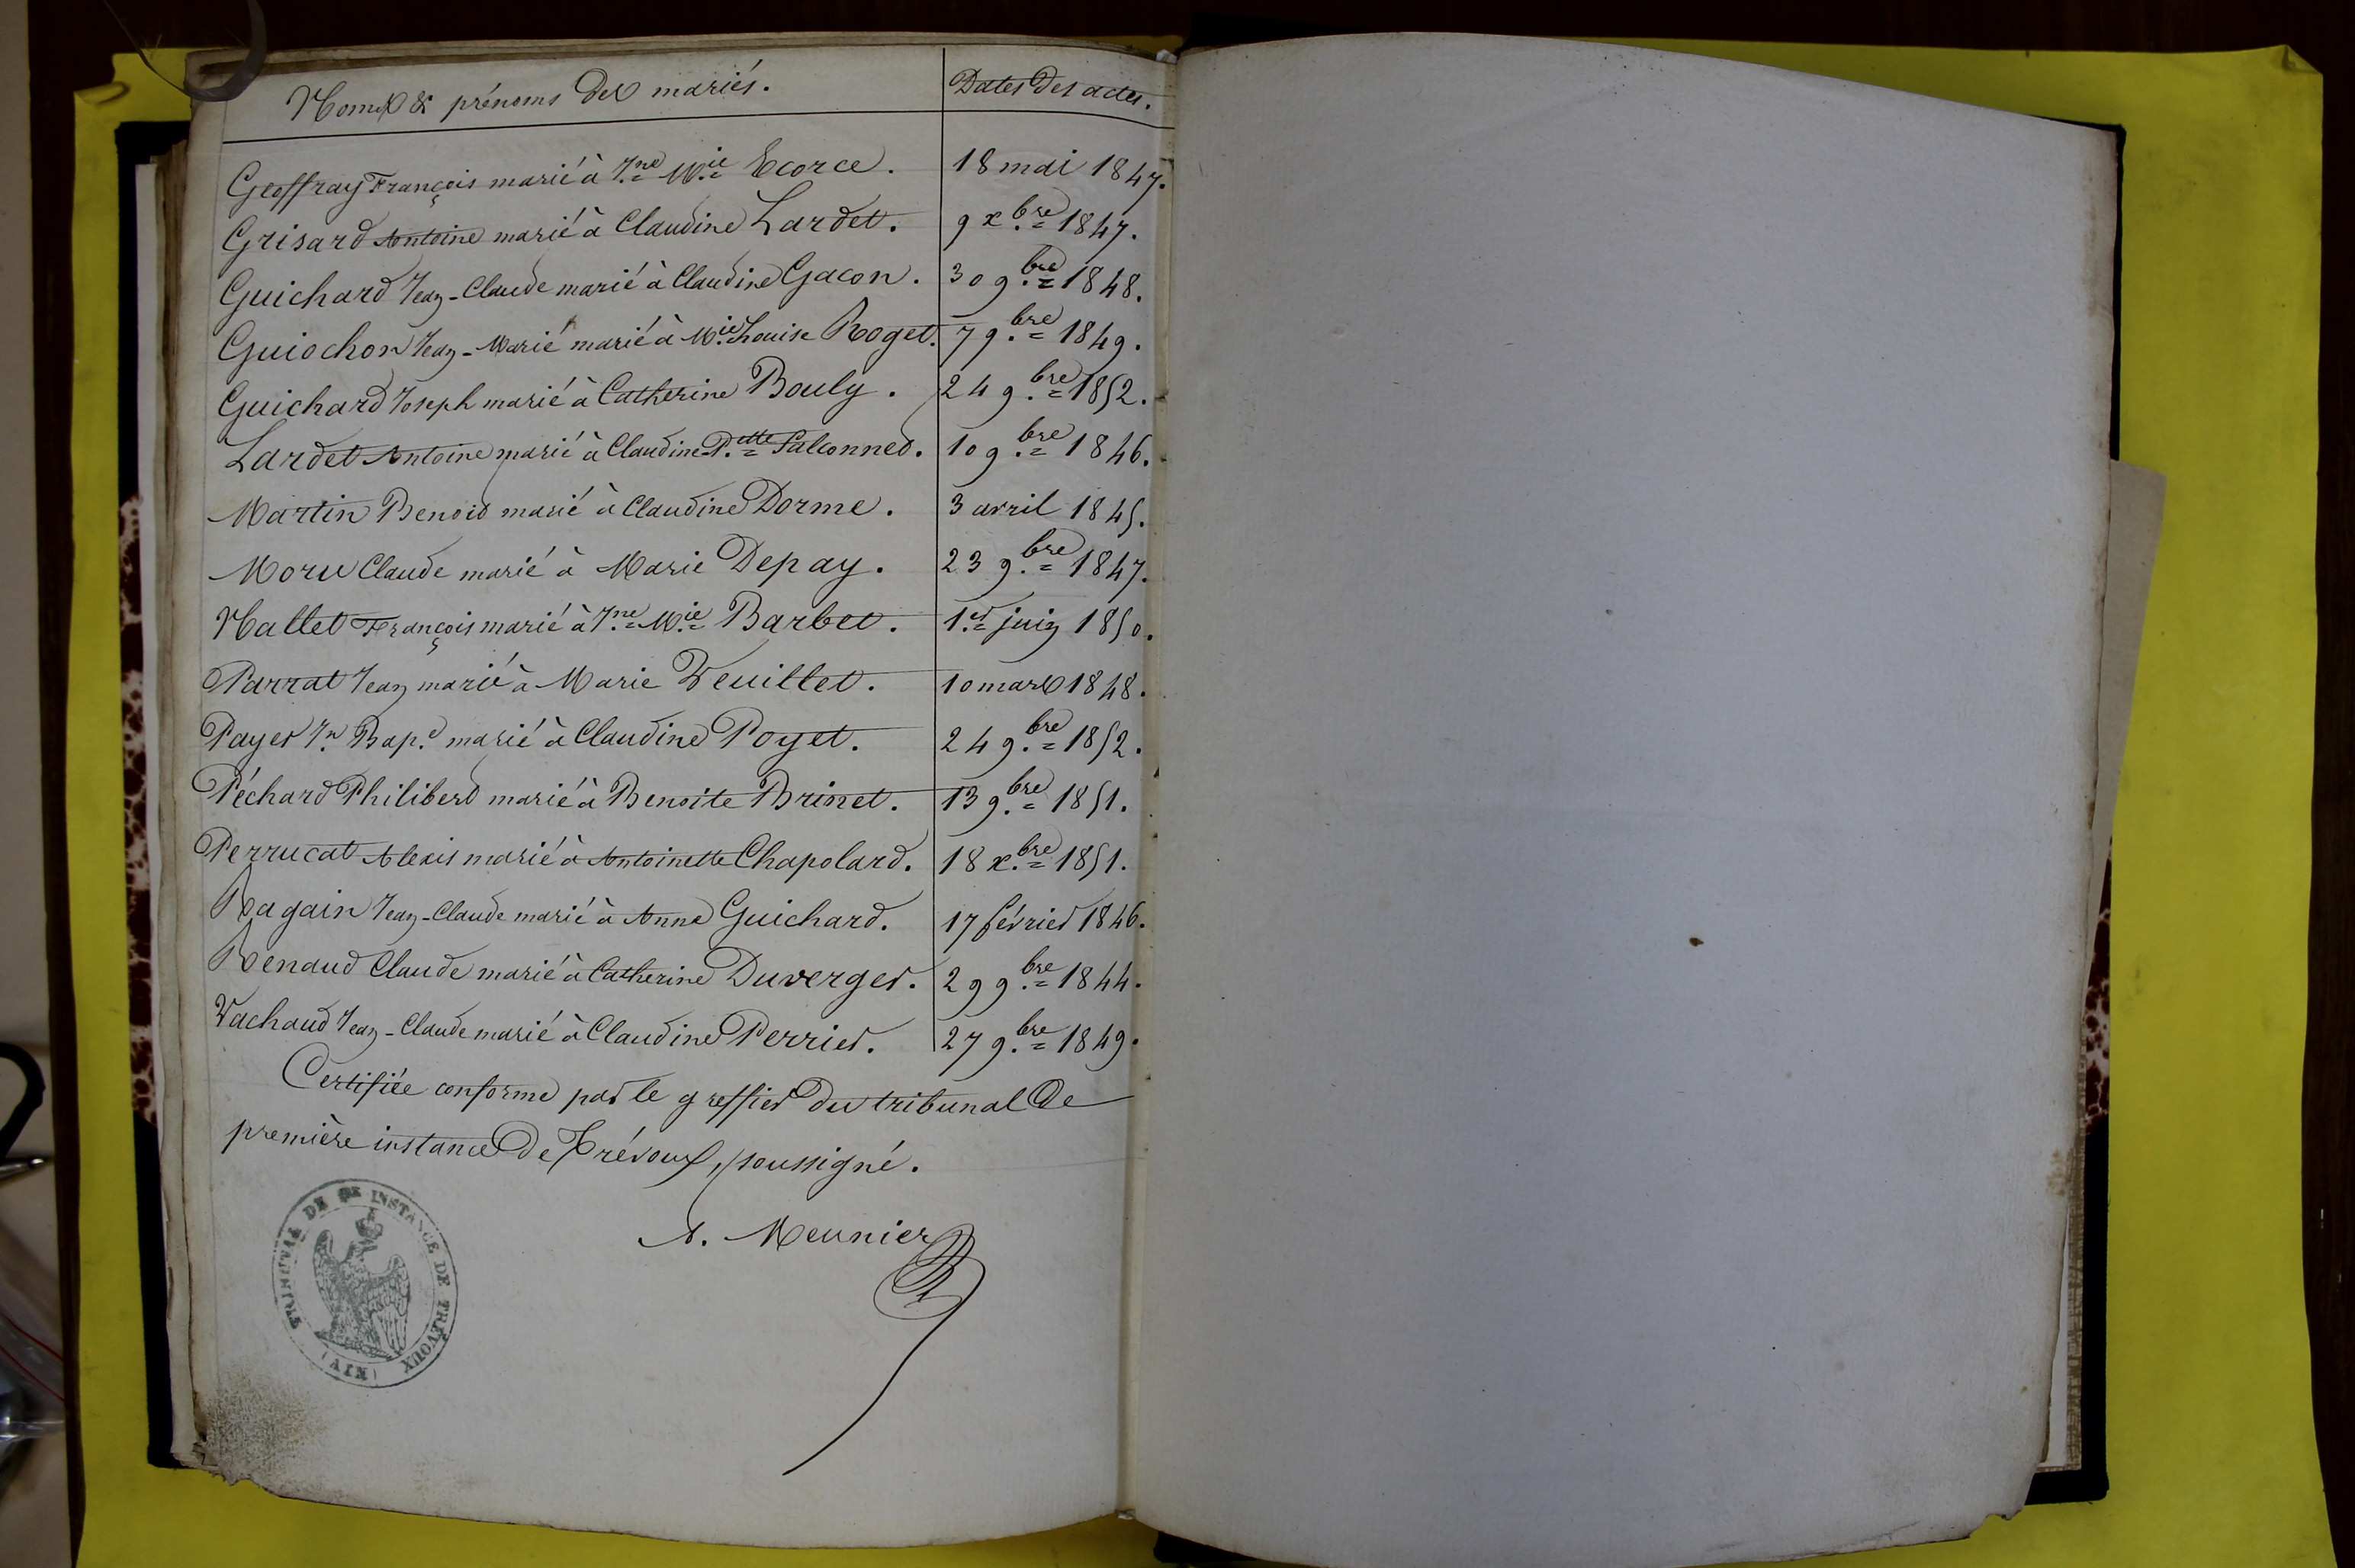 Noms & prénoms des mariés. Dates des actes.
Geoffray François marié à Jne Mie Ecorce. 18 mai 1847.
Grisard Antoine marié à Claudine Lardet. 9 xbre 1847.
Guichard Jean-Claude marié à Claudine Gacon. 30 9bre 1848.
Guiochon Jean-Marie marié à Mie Louise Roget. 7 9bre 1849.
Guichard Joseph marié à Catherine Bouly. 24 9bre 1852.
Lardet Antoine marié à Claudine-Pette Falconnet. 10 9bre 1846.
Martin Benoit marié à Claudine Dorme. 3 avril 1845.
Moru Claude marié à Marie Depay. 23 9bre 1847.
Nallet François marié à Jne Mie Barbet. 1er juin 1850.
Parrat Jean marié à Marie Veuillet. 10 mars 1848.
Payer Jn Bap.e marié à Claudine Poyet. 24 9bre 1852.
Péchard Philibert marié à Benoite Brinet. 13 9bre 1851.
Perrucat Alexis marié à Antoinette Chapolard. 18 xbre 1851.
Ragain Jean-Claude marié à Anne Guichard. 17 février 1846.
Renaud Claude marié à Catherine Duverger. 29 9bre 1844.
Vachaud Jean-Claude marié à Claudine Perrier. 27 9bre 1849.
Certifiée conforme par le greffier du tribunal de
première instance de Trévoux, soussigné.
A. Meunier
TRIBUNAL DE INSTANCE DE TRÉVOUX (AIN)